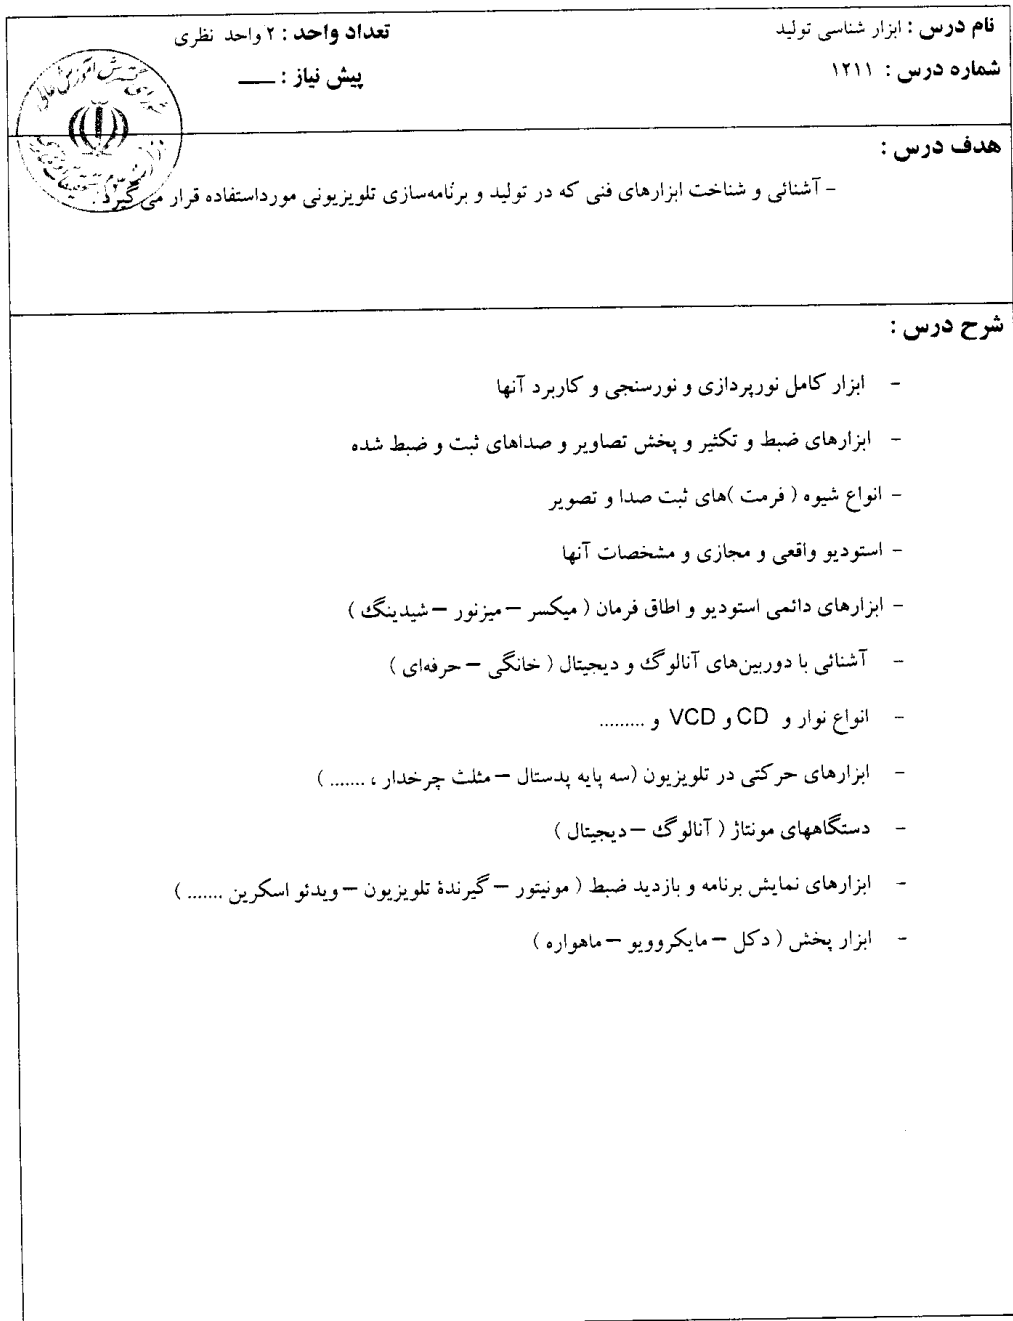 نام درس : ابزار شناسی تولید
تعداد واحد : ۲ واحد نظری
شماره درس : ۱۲۱۱
پیش نیاز : ــــ
شورای گسترش آموزش عالی
هدف درس :
- آشنائی و شناخت ابزارهای فنی که در تولید و برنامه‌سازی تلویزیونی مورداستفاده قرار می گیرد .
شرح درس :
- ابزار کامل نورپردازی و نورسنجی و کاربرد آنها
- ابزارهای ضبط و تکثیر و پخش تصاویر و صداهای ثبت و ضبط شده
- انواع شیوه ( فرمت )های ثبت صدا و تصویر
- استودیو واقعی و مجازی و مشخصات آنها
- ابزارهای دائمی استودیو و اطاق فرمان ( میکسر – میزنور – شیدینگ )
- آشنائی با دوربین‌های آنالوگ و دیجیتال ( خانگی – حرفه‌ای )
- انواع نوار و CD و VCD و .........
- ابزارهای حرکتی در تلویزیون (سه پایه پدستال – مثلث چرخدار ، ....... )
- دستگاههای مونتاژ ( آنالوگ – دیجیتال )
- ابزارهای نمایش برنامه و بازدید ضبط ( مونیتور – گیرندۀ تلویزیون – ویدئو اسکرین ....... )
- ابزار پخش ( دکل – مایکروویو – ماهواره )